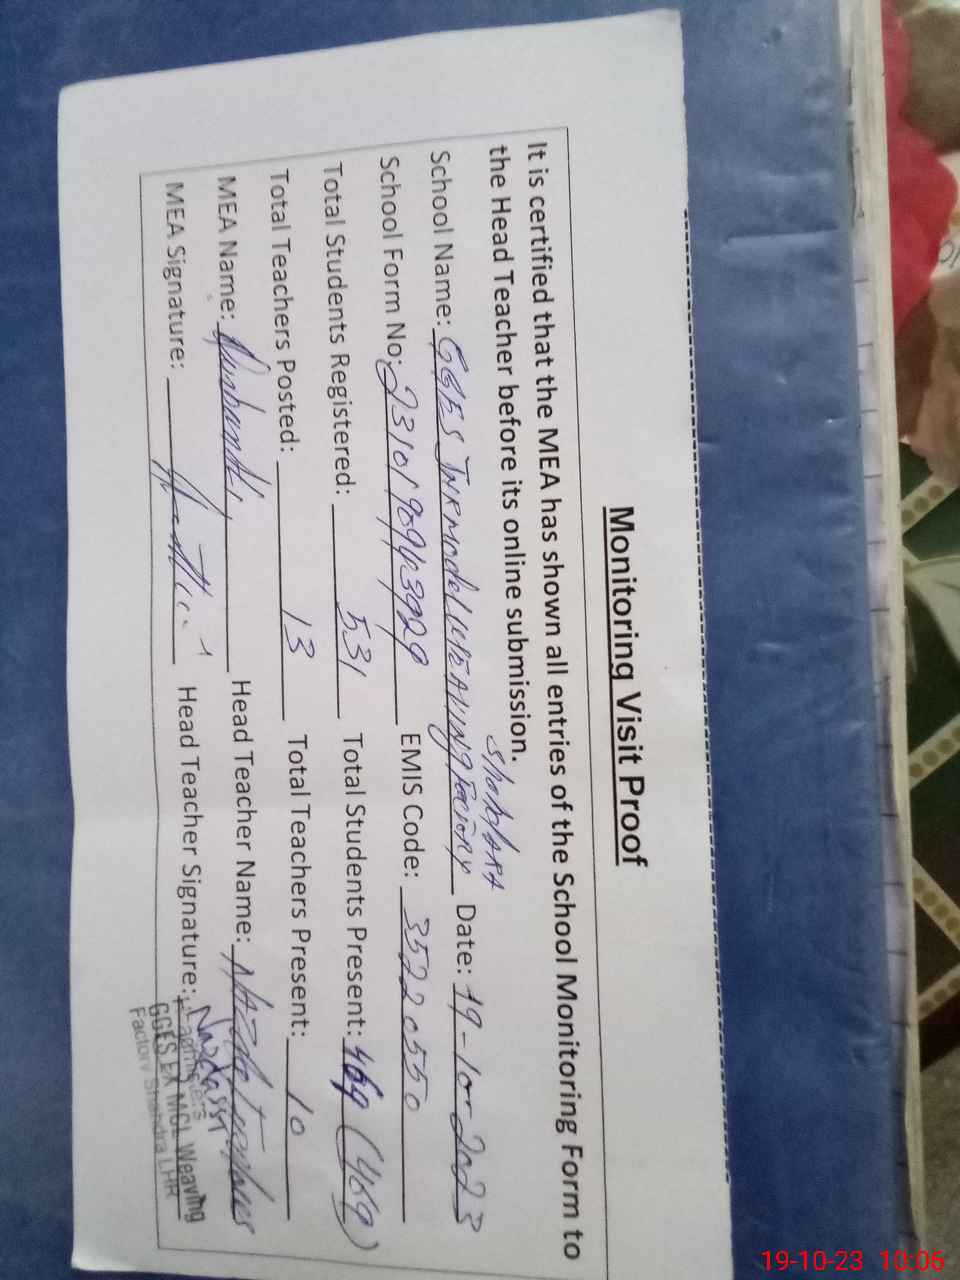 Monitoring Visit Proof
It is certified that the MEA has shown all entries of the School Monitoring Form to
the Head Teacher before its online submission.
School Name: GGES Weaving Factory Shahdara Date: 19-10-2023
School Form No: EMIS Code: 35220550
Total Students Registered: 531 Total Students Present: 469 (469)
Total Teachers Posted: 13 Total Teachers Present: 10
MEA Name: Head Teacher Name:
MEA Signature: Head Teacher Signature:
Headmistress
GGES EX MCL Weaving
Factory Shahdra LHR
19-10-23 10:06